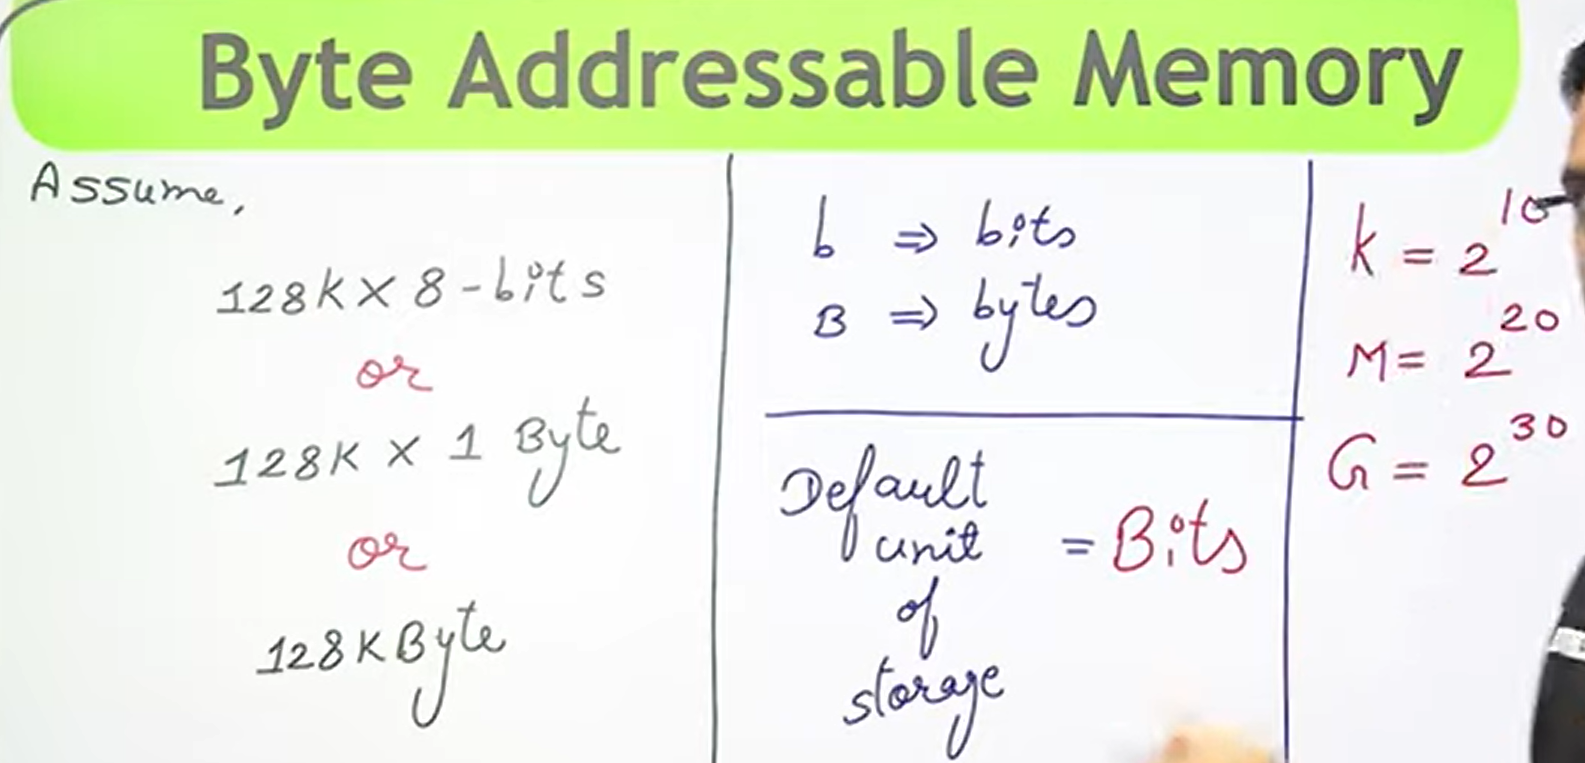 Byte Addressable Memory
Assume,
128K × 8-bits
or
128K × 1 Byte
or
128KByte
b ⇒ bits
B ⇒ bytes
Default
unit
of
storage
= Bits
K = 2^10
M = 2^20
G = 2^30